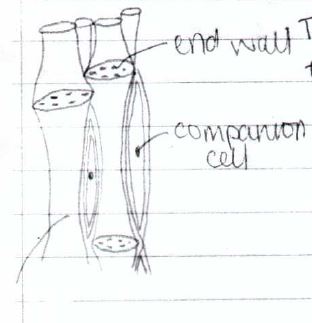 end wall T
companion
cell